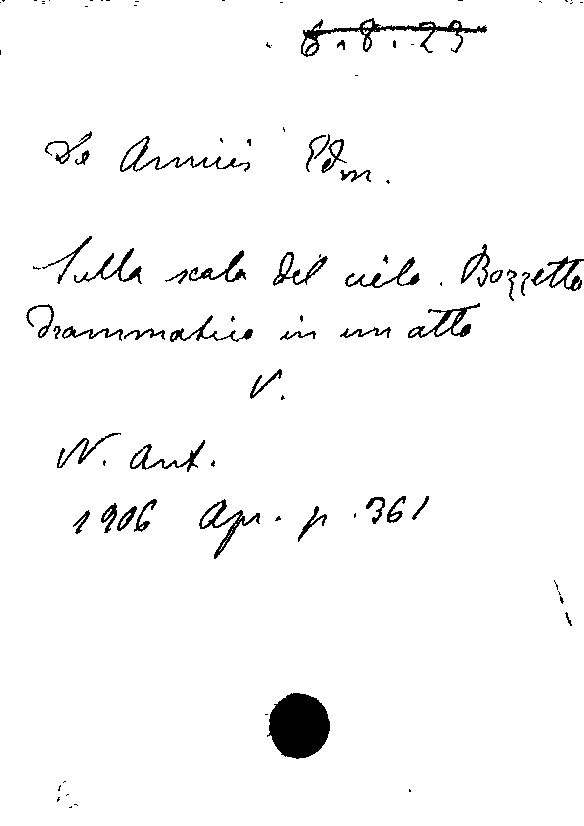 6.8.23
De Amicis Edm.
Sulla scala del cielo. Bozzetto
drammatico in un atto
V.
N. Ant.
1906 Apr. p. 361